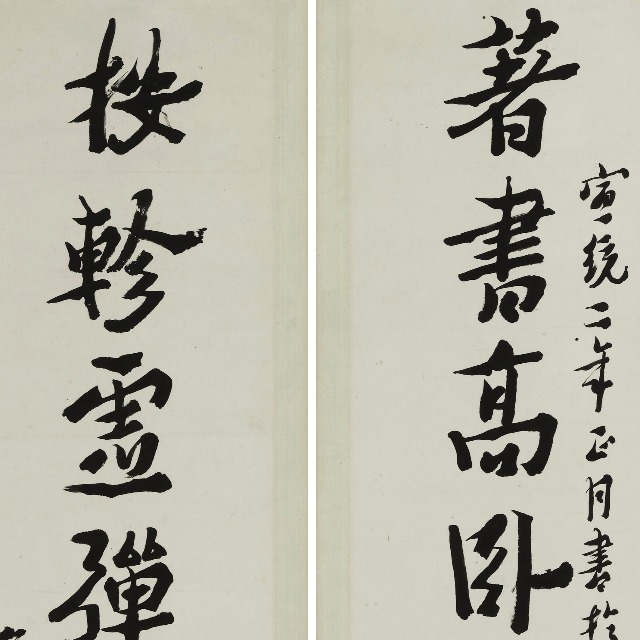 宣統二年正月書於
著書高卧
按軫霊彈